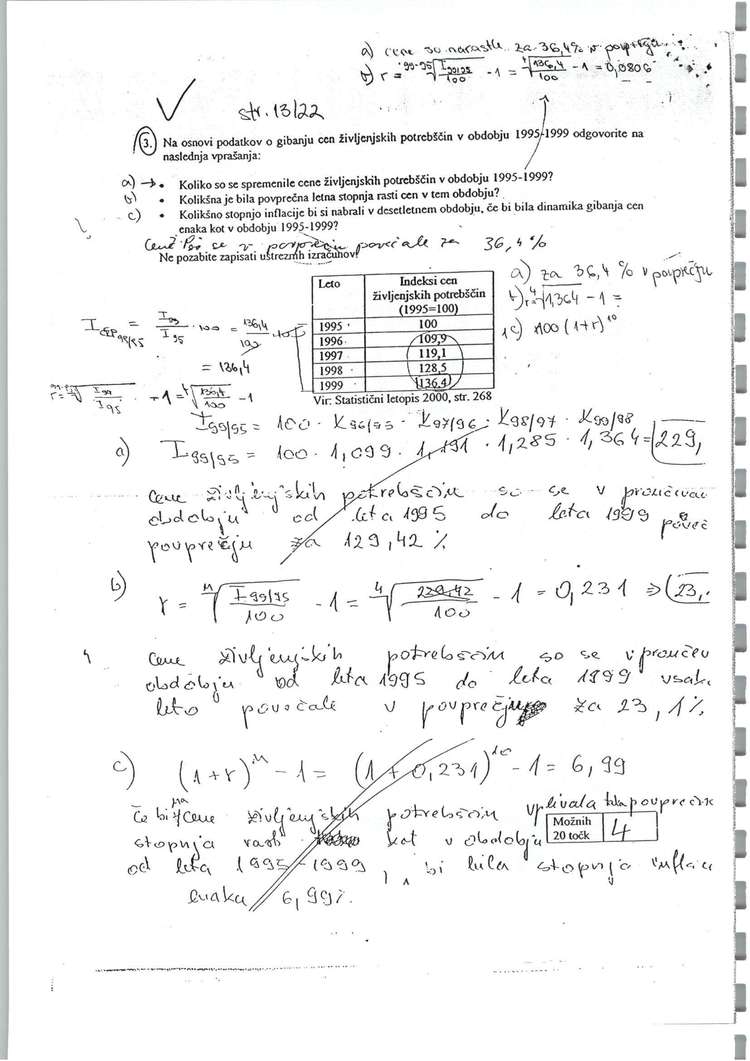 a) cene so narastle za 36,4% v povprečju
b) r = 99-95√(I99/95 / 100) - 1 = 4√(136,4 / 100) - 1 = 0,0806
str. 13/22
3. Na osnovi podatkov o gibanju cen življenjskih potrebščin v obdobju 1995-1999 odgovorite na
naslednja vprašanja:
a) → • Koliko so se spremenile cene življenjskih potrebščin v obdobju 1995-1999?
b) • Kolikšna je bila povprečna letna stopnja rasti cen v tem obdobju?
c) • Kolikšno stopnjo inflacije bi si nabrali v desetletnem obdobju, če bi bila dinamika gibanja cen
enaka kot v obdobju 1995-1999?
Cene so se v povprečju povečale za 36,4%
Ne pozabite zapisati ustreznih izračunov!
a) za 36,4 % v povprečju
b) r = 4√1,364 - 1 =
c) 100 (1+r)^10
Leto Indeksi cen
življenjskih potrebščin
(1995=100)
1995 100
1996 109,9
1997 119,1
1998 128,5
1999 136,4
Vir: Statistični letopis 2000, str. 268
= I99 / I95 · 100 = 136,4 / 100 · 100
= 136,4
√(I99 / I95) - 1 = 4√(136,4 / 100) - 1
I99/95 = 100 · K96/95 · K97/96 · K98/97 · K99/98
a) I99/95 = 100 · 1,099 · 1,191 · 1,285 · 1,364 = 229,
Cene življenjskih potrebščin so se v proučevane
obdobju od leta 1995 do leta 1999 poveč
povprečju za 129,42 %
b) r = M√(I99/95 / 100) - 1 = 4√(229,42 / 100) - 1 = 0,231 ⇒ 23,
Cene življenjskih potrebščin so se v proučev
obdobju od leta 1995 do leta 1999 vsak
leto povečale v povprečju za 23,1%
c) (1+r)^M - 1 = (1+0,231)^10 - 1 = 6,99
Če bi na cene življenjskih potrebščin vplivala taka povprečna
stopnja rasti kot v obdobju
Možnih
20 točk 4
od leta 1995-1999, bi bila stopnja inflaci
enaka 6,99%.